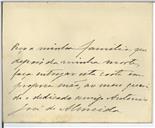 Peço a minha família que
depois da minha morte,
faça entregar esta carta em
propria mão, ao meu querido
e dedicado amigo Antonio
José de Almeida